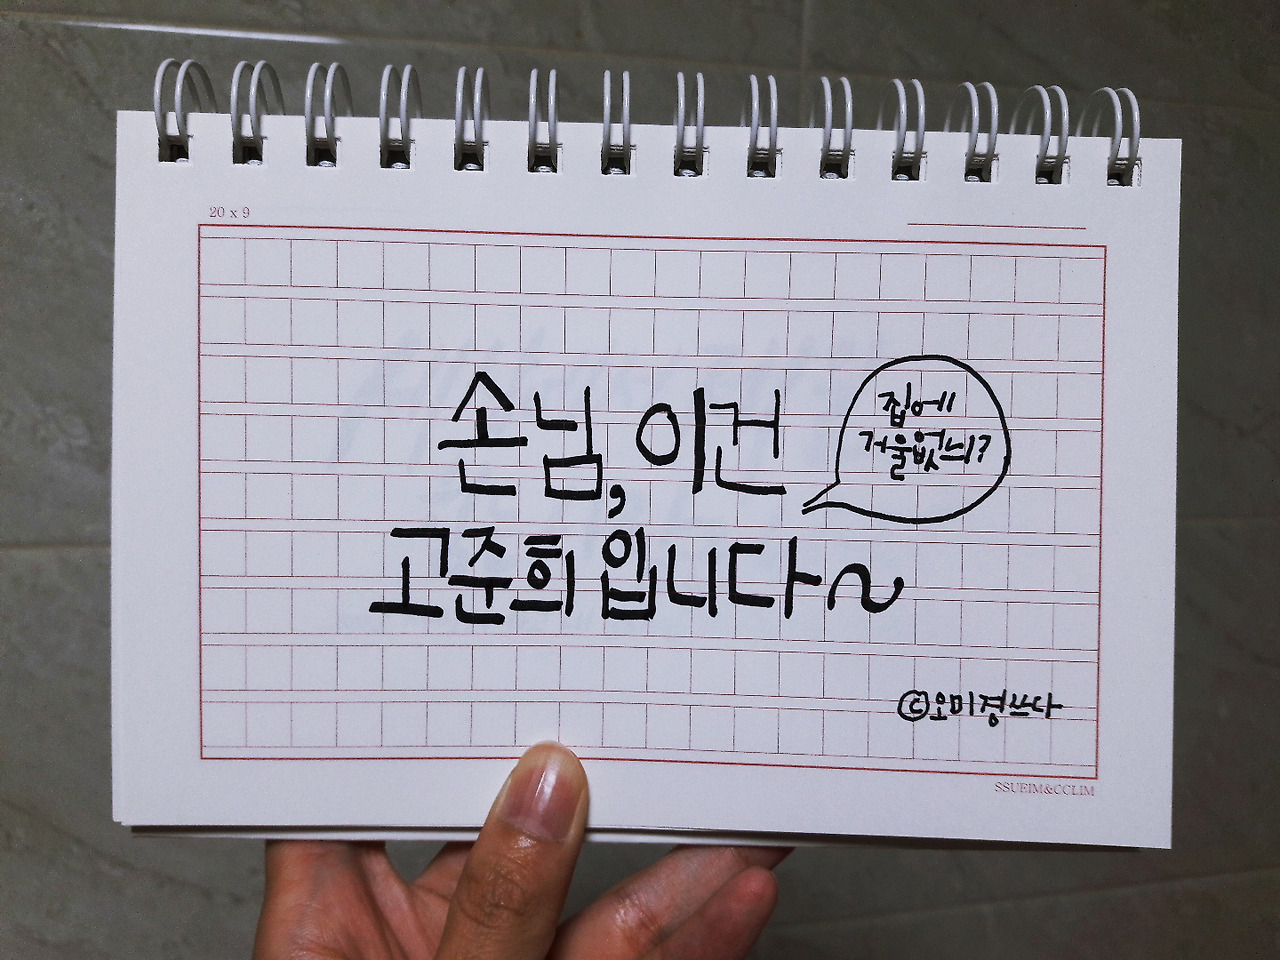 20 x 9
손님, 이건
집에
거울없늬?
고준희입니다~
©오미경쓰다
SSUEIM&CCLIM